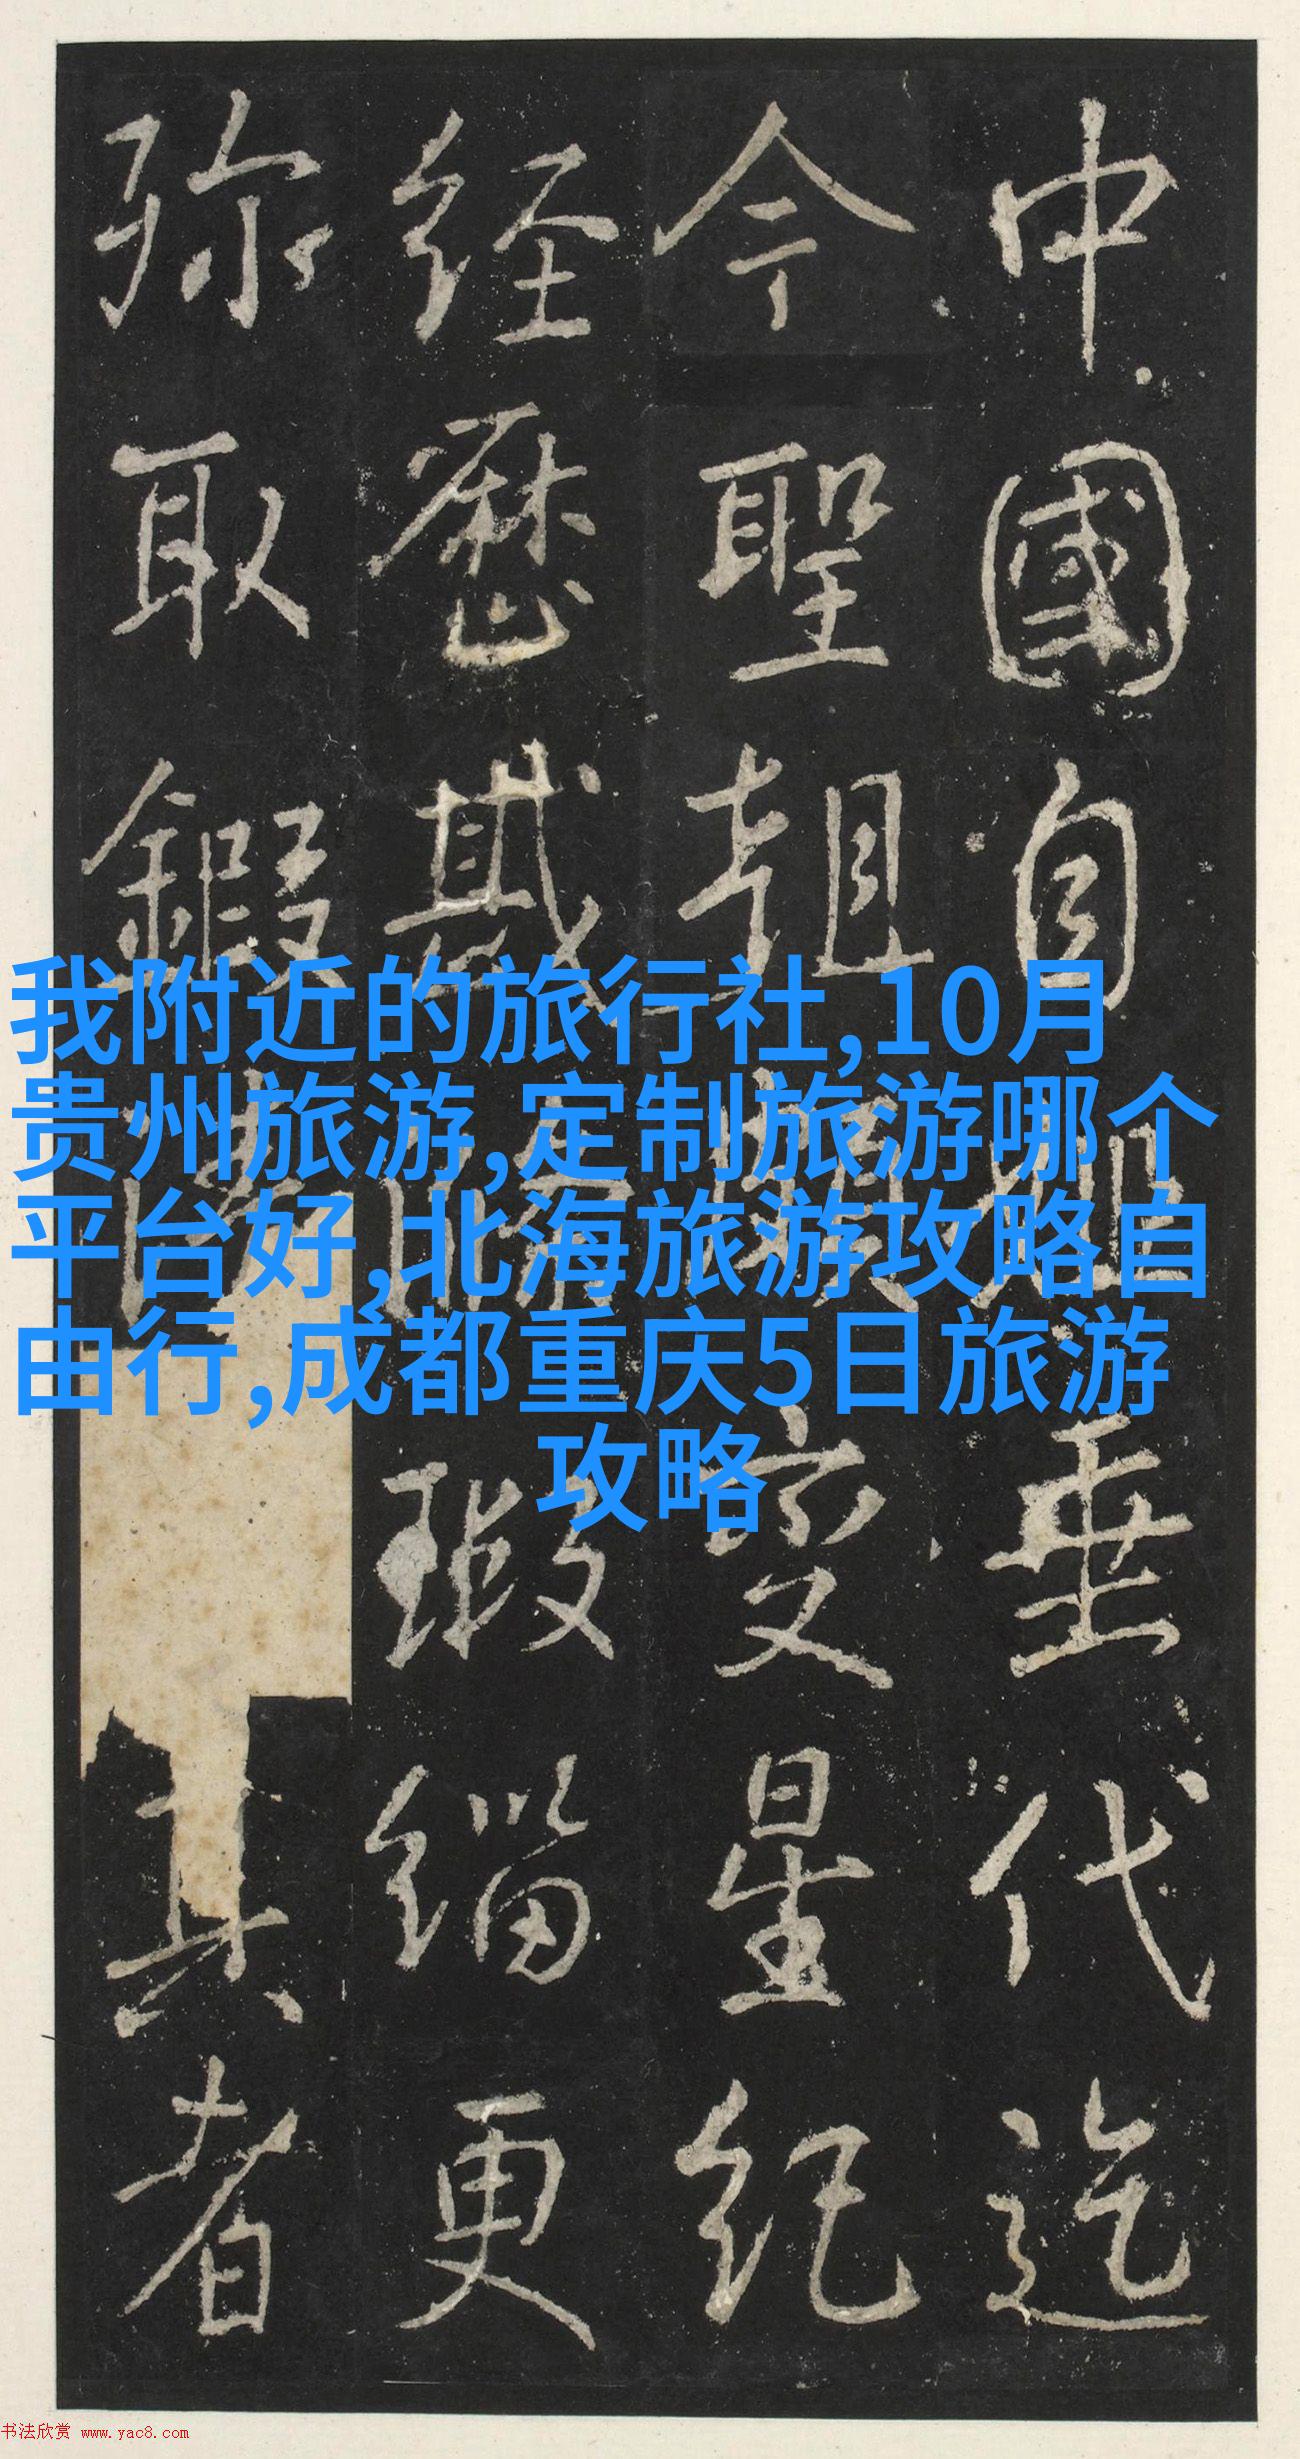 中國自垂代迄
今聖朝星紀
経歷瑕緇更
弥取者
我附近的旅行社,10月
贵州旅游,定制旅游哪个
平台好,北海旅游攻略自
由行,成都重庆5日旅游
攻略
书法欣赏 www.yac8.com